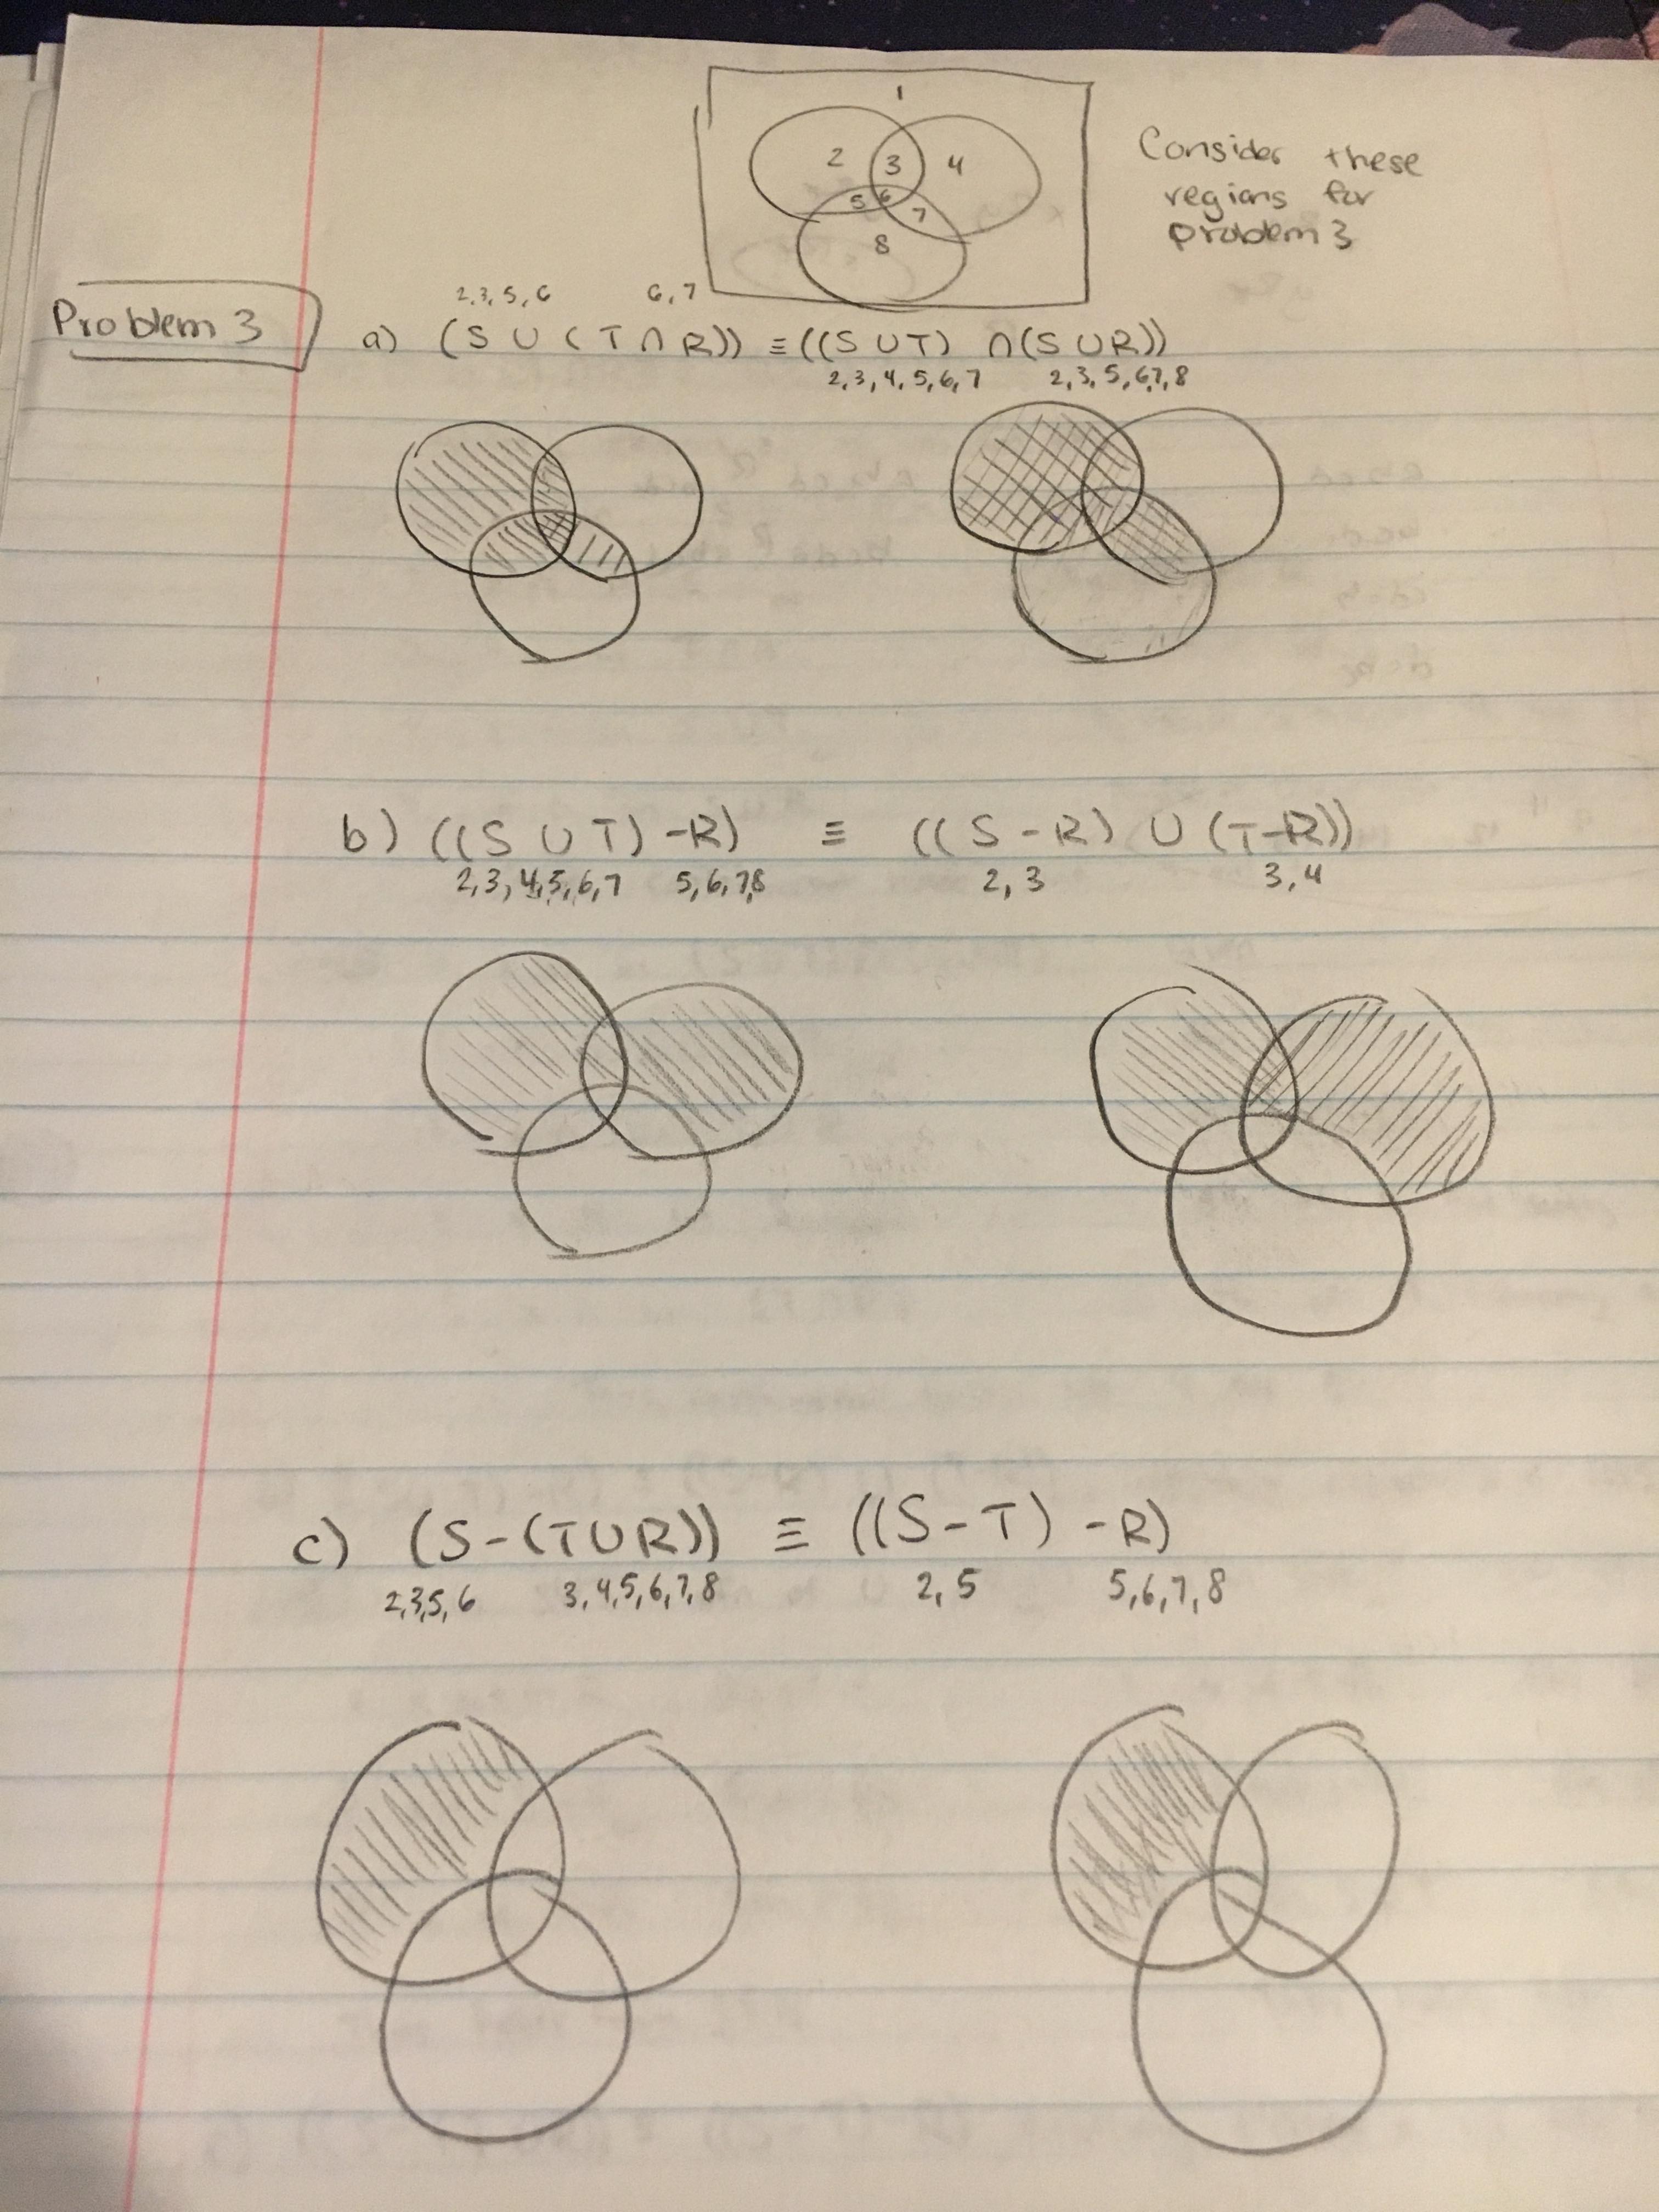 1
2 3 4
5 6 7
8
Consider these
regions for
problem 3
Problem 3
2,3,5,6 6,7
a) (S ∪ (T ∩ R)) ≡ ((S ∪ T) ∩ (S ∪ R))
2,3,4,5,6,7 2,3,5,6,7,8
b) ((S ∪ T) - R) ≡ ((S - R) ∪ (T - R))
2,3,4,5,6,7 5,6,7,8 2,3 3,4
c) (S - (T ∪ R)) ≡ ((S - T) - R)
2,3,5,6 3,4,5,6,7,8 2,5 5,6,7,8